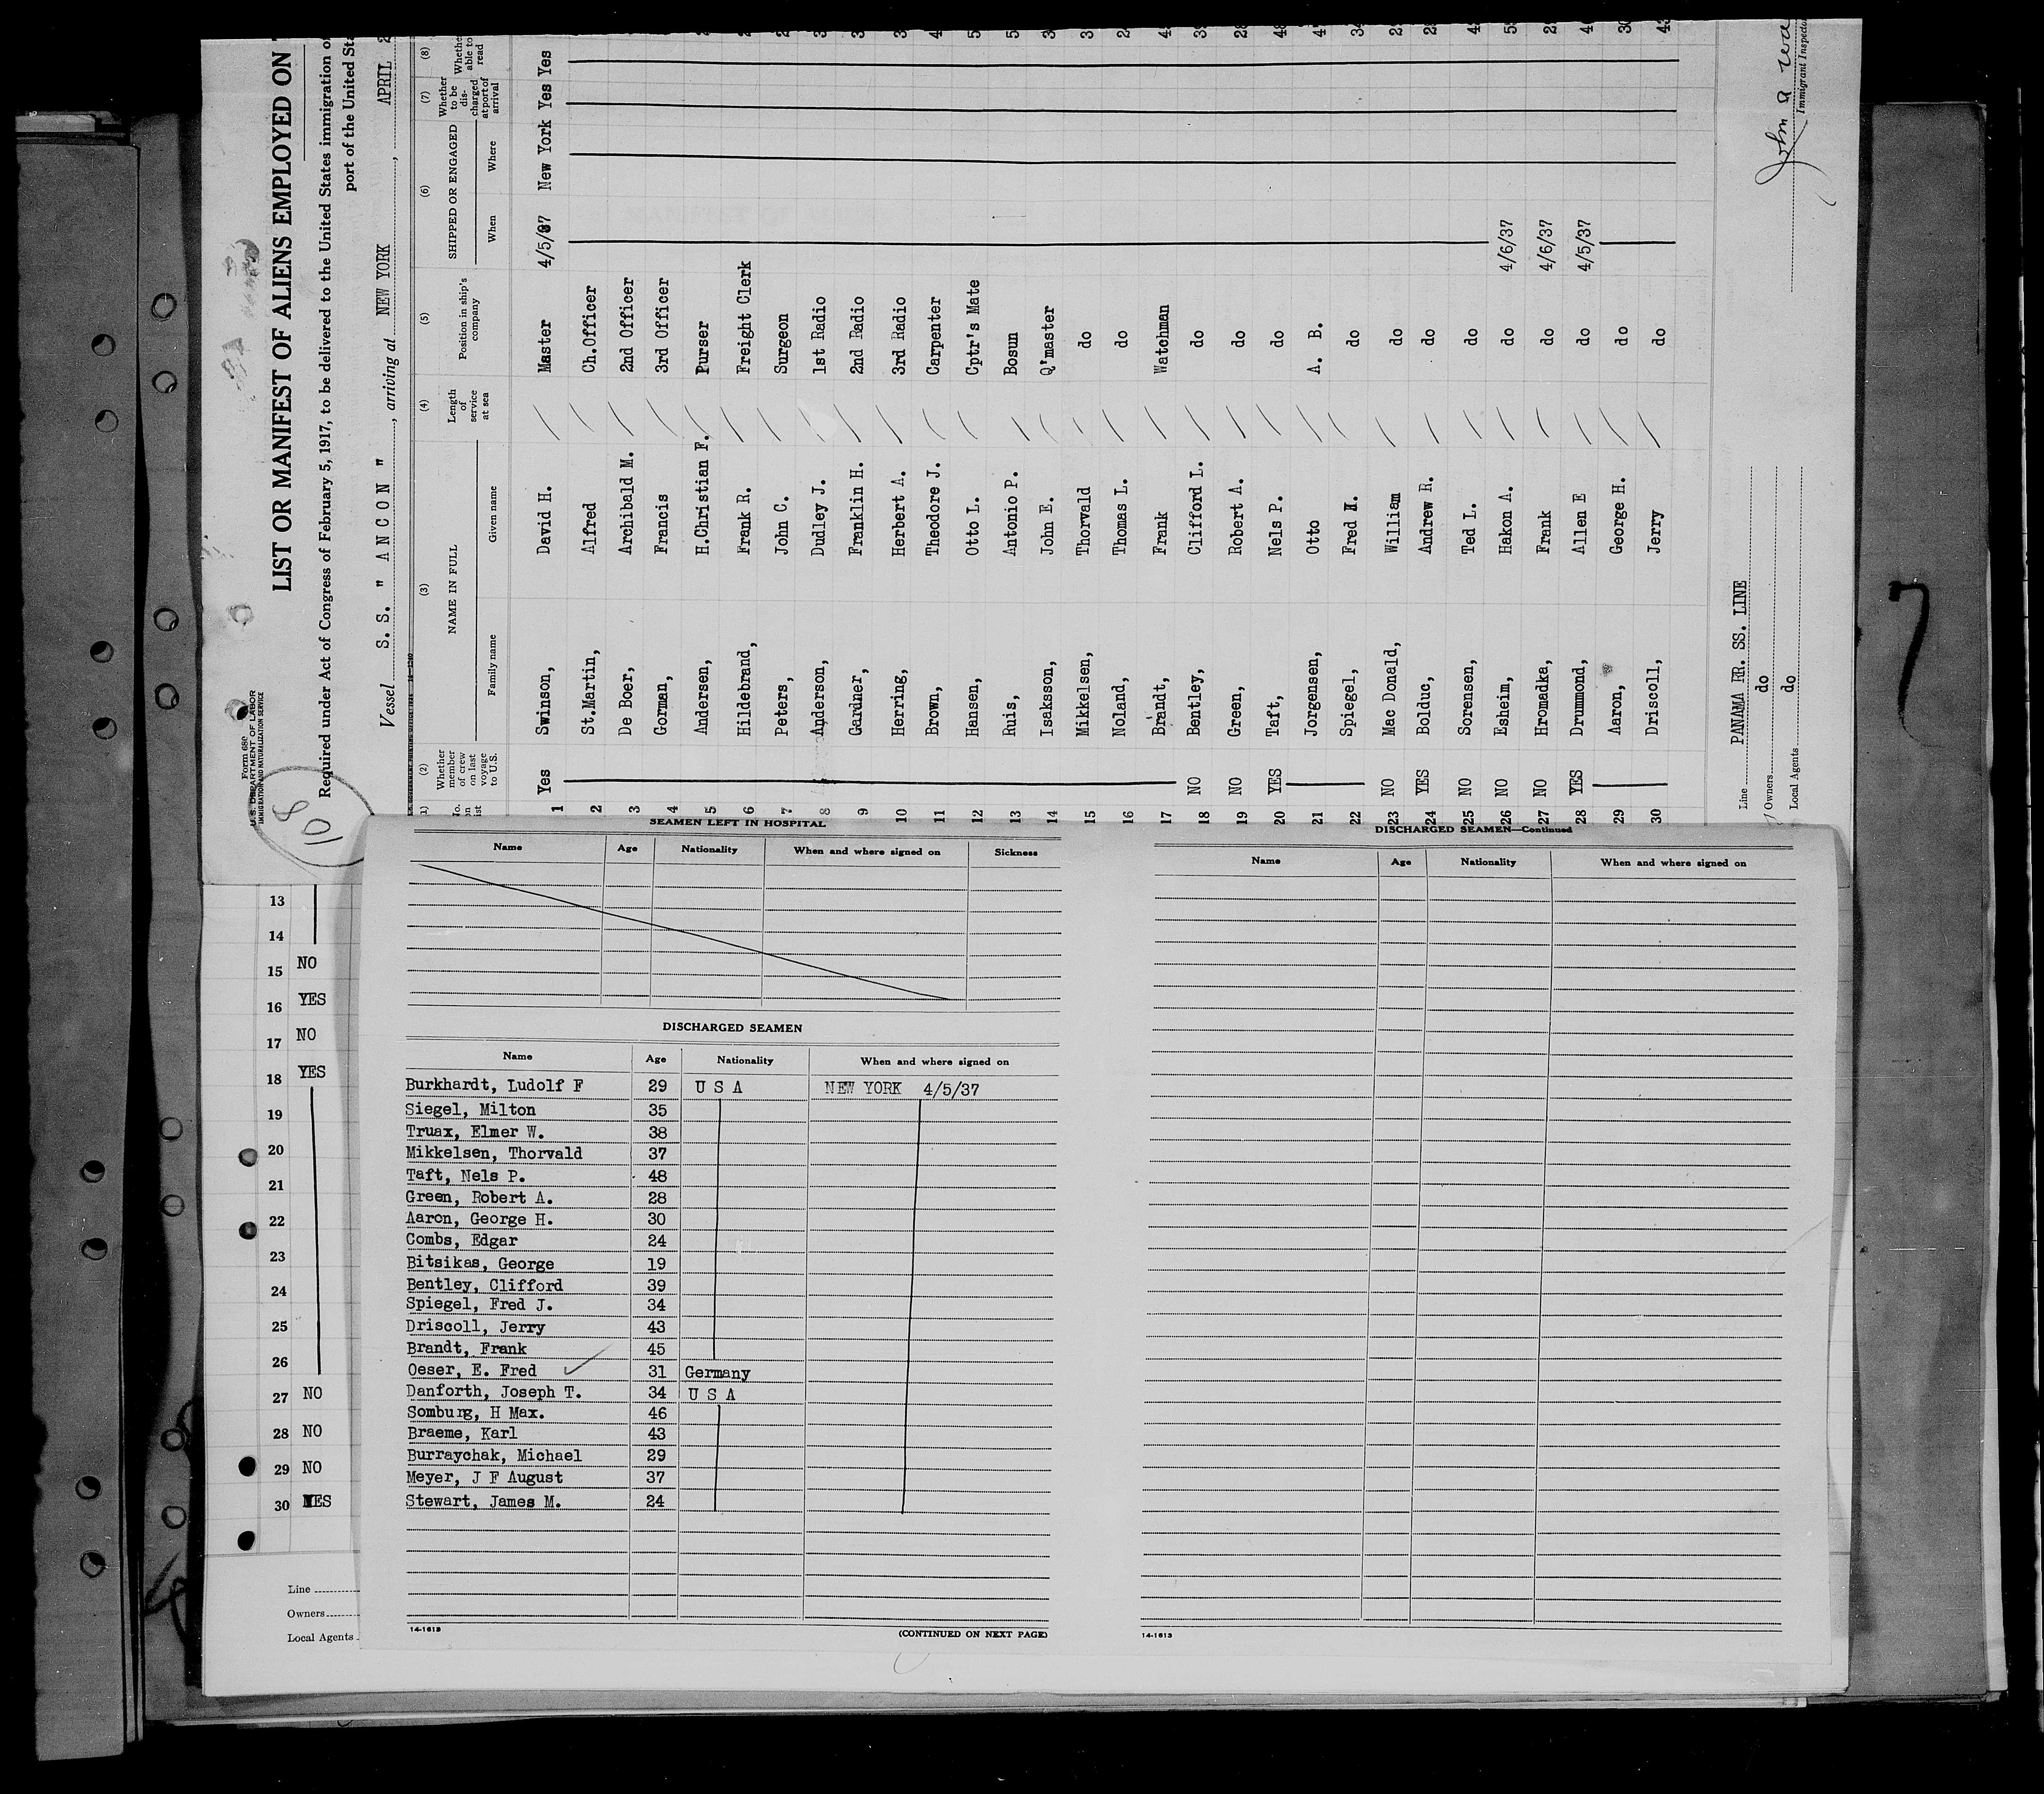 Form 680
U.S. DEPARTMENT OF LABOR
IMMIGRATION AND NATURALIZATION SERVICE
LIST OR MANIFEST OF ALIENS EMPLOYED ON
Required under Act of Congress of February 5, 1917, to be delivered to the United States immigration
port of the United
Vessel S. S. " A N C O N ", arriving at NEW YORK, APRIL
(1) (2) (3) (4) (5) (6) (7) (8)
Whether member of crew on last voyage to U.S. NAME IN FULL Length of service at sea Position in ship's company SHIPPED OR ENGAGED Whether to be discharged at port of arrival Whether able to read
Family name Given name When Where
1 Yes Swinson, David H. Master 4/5/37 New York Yes Yes
2 St.Martin, Alfred Ch.Officer
3 De Boer, Archibald M. 2nd Officer
4 Gorman, Francis 3rd Officer
5 Andersen, H.Christian F. Purser
6 Hildebrand, Frank R. Freight Clerk
7 Peters, John C. Surgeon
8 Anderson, Dudley J. 1st Radio
9 Gardner, Franklin H. 2nd Radio
10 Herring, Herbert A. 3rd Radio
11 Brown, Theodore J. Carpenter
12 Hansen, Otto L. Cptr's Mate
13 Ruis, Antonio P. Bosun
14 Isaksson, John E. Q'master
15 Mikkelsen, Thorvald do
16 Noland, Thomas L. do
17 Brandt, Frank Watchman
18 NO Bentley, Clifford L. do
19 NO Green, Robert A. do
20 YES Taft, Nels P. do
21 Jorgensen, Otto A. B.
22 Spiegel, Fred do
23 NO Mac Donald, William do
24 YES Bolduc, Andrew R. do
25 NO Sorensen, Ted L. do
26 NO Esheim, Hakon A. do 4/6/37
27 NO Hromadka, Frank do 4/6/37
28 YES Drummond, Allen E do 4/5/37
29 Aaron, George H. do
30 Driscoll, Jerry do
Line PANAMA RR. SS. LINE
Owners do
Local Agents do
John
Immigrant
7
13
14
15 NO
16 YES
17 NO
18 YES
19
20
21
22
23
24
25
26
27 NO
28 NO
29 NO
30 YES
Line
Owners
Local Agents
SEAMEN LEFT IN HOSPITAL
Name Age Nationality When and where signed on Sickness
DISCHARGED SEAMEN
Name Age Nationality When and where signed on
Burkhardt, Ludolf F 29 U S A NEW YORK 4/5/37
Siegel, Milton 35
Truax, Elmer W. 38
Mikkelsen, Thorvald 37
Taft, Nels P. 48
Green, Robert A. 28
Aaron, George H. 30
Combs, Edgar 24
Bitsikas, George 19
Bentley, Clifford 39
Spiegel, Fred J. 34
Driscoll, Jerry 43
Brandt, Frank 45
Oeser, E. Fred 31 Germany
Danforth, Joseph T. 34 U S A
Somburg, H Max. 46
Braeme, Karl 43
Burraychak, Michael 29
Meyer, J F August 37
Stewart, James M. 24
14-1613
(CONTINUED ON NEXT PAGE)
DISCHARGED SEAMEN—Continued
Name Age Nationality When and where signed on
14-1613